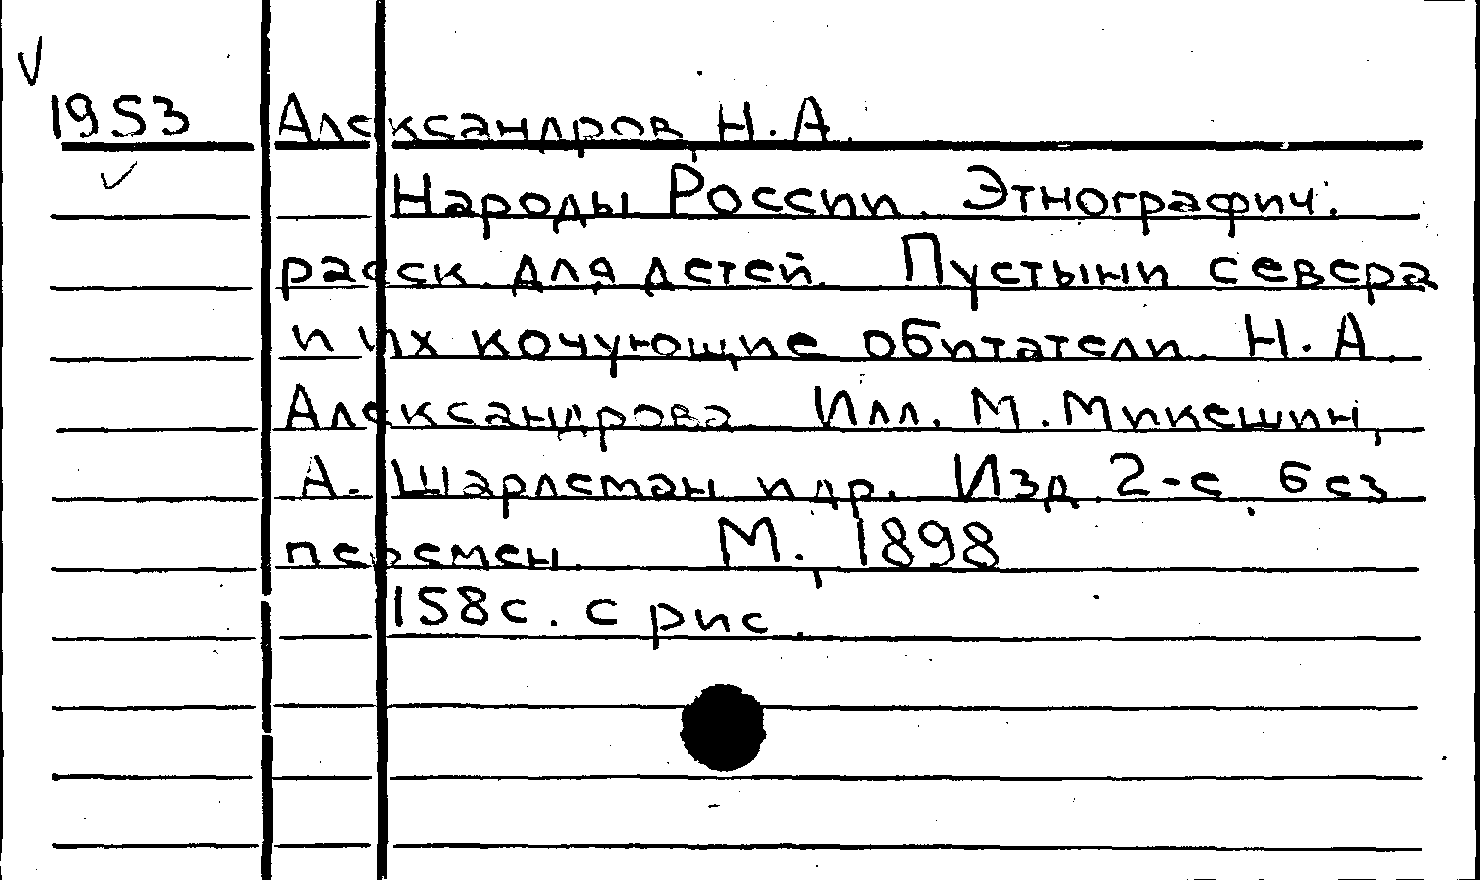 1953 Александров, Н.А.
Народы России. Этнографич.
расск. для детей. Пустыни севера
и их кочующие обитатели. Н.А.
Александрова. Илл. М. Микешин,
А. Шарлеман и др. Изд. 2-е, без
перемен. М., 1898
158с. с рис.